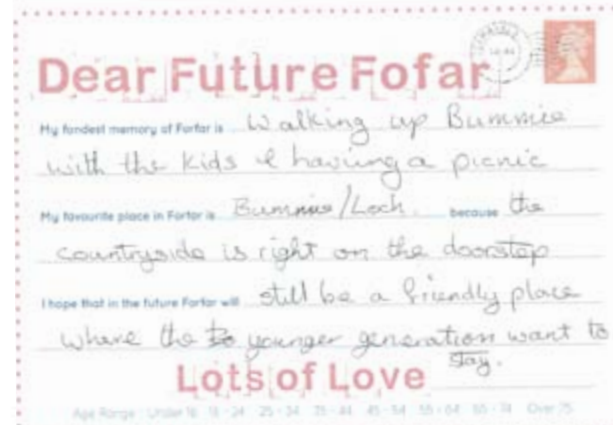 Dear Future Fofar
My fondest memory of Forfar is Walking up Bummie
with the kids & having a picnic
My favourite place in Forfar is Bummie/Loch. because the
countryside is right on the doorstep
I hope that in the future Forfar will still be a friendly place
where the to younger generation want to
stay.
Lots of Love
Age Range: Under 18 18 - 24 25 - 34 35 - 44 45 - 54 55 - 64 65 - 74 Over 75